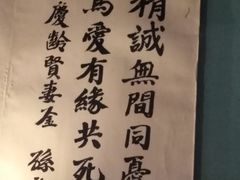 精誠無間同憂
篤愛有緣共死
慶齡賢妻鉴 孫